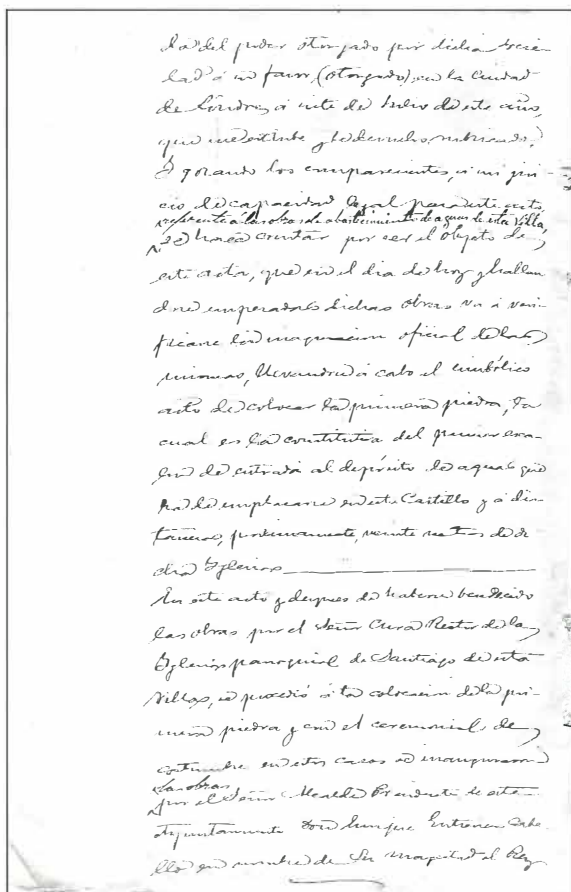 la del poder otorgado por dicha Socie-
dad á su favor, (otorgado) en la Ciudad
de Londres á siete de Julio de este año,
que me exhibe y le devuelvo rubricado.
Y gozando los comparecientes, á mi jui-
cio de capacidad legal para este acto,
respecto á las obras de abastecimiento de aguas de esta Villa,
se hace constar por ser el objeto de
este acta, que en el dia de hoy y hallan
dose empezadas dichas obras va á veri-
ficarse la inauguracion oficial de las
mismas, llevandose á cabo el simbólico
acto de colocar la primera piedra, la
cual es la constitutiva del primer esca-
lon de entrada al depósito de aguas que
ha de emplazarse en este Castillo y á dis-
tancia, proximamente, veinte metros de di
cha Iglesia
En este acto y despues de haberse bendecido
las obras por el Señor Cura Rector de la
Iglesia parroquial de Santiago de esta
Villa, se procedió á la colocacion de la pri-
mera piedra y con el ceremonial de
costumbre en estos casos se inauguraron
las obras
por el Señor Alcalde Presidente de este
Ayuntamiento Don Enrique Entrena
en nombre de Su Magestad el Rey